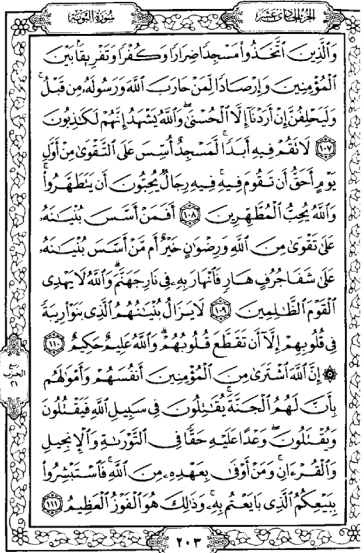 الجزء الحادي عشر
سورة التوبة
وَٱلَّذِينَ ٱتَّخَذُوا۟ مَسْجِدًا ضِرَارًا وَكُفْرًا وَتَفْرِيقًۢا بَيْنَ
ٱلْمُؤْمِنِينَ وَإِرْصَادًا لِّمَنْ حَارَبَ ٱللَّهَ وَرَسُولَهُۥ مِن قَبْلُ ۚ
وَلَيَحْلِفُنَّ إِنْ أَرَدْنَآ إِلَّا ٱلْحُسْنَىٰ ۖ وَٱللَّهُ يَشْهَدُ إِنَّهُمْ لَكَـٰذِبُونَ
١٠٧ لَا تَقُمْ فِيهِ أَبَدًا ۚ لَّمَسْجِدٌ أُسِّسَ عَلَى ٱلتَّقْوَىٰ مِنْ أَوَّلِ
يَوْمٍ أَحَقُّ أَن تَقُومَ فِيهِ ۚ فِيهِ رِجَالٌ يُحِبُّونَ أَن يَتَطَهَّرُوا۟ ۚ
وَٱللَّهُ يُحِبُّ ٱلْمُطَّهِّرِينَ ١٠٨ أَفَمَنْ أَسَّسَ بُنْيَـٰنَهُۥ
عَلَىٰ تَقْوَىٰ مِنَ ٱللَّهِ وَرِضْوَٰنٍ خَيْرٌ أَم مَّنْ أَسَّسَ بُنْيَـٰنَهُۥ
عَلَىٰ شَفَا جُرُفٍ هَارٍ فَٱنْهَارَ بِهِۦ فِى نَارِ جَهَنَّمَ ۗ وَٱللَّهُ لَا يَهْدِى
ٱلْقَوْمَ ٱلظَّـٰلِمِينَ ١٠٩ لَا يَزَالُ بُنْيَـٰنُهُمُ ٱلَّذِى بَنَوْا۟ رِيبَةً
فِى قُلُوبِهِمْ إِلَّآ أَن تَقَطَّعَ قُلُوبُهُمْ ۗ وَٱللَّهُ عَلِيمٌ حَكِيمٌ ١١٠
۞ إِنَّ ٱللَّهَ ٱشْتَرَىٰ مِنَ ٱلْمُؤْمِنِينَ أَنفُسَهُمْ وَأَمْوَٰلَهُم
بِأَنَّ لَهُمُ ٱلْجَنَّةَ ۚ يُقَـٰتِلُونَ فِى سَبِيلِ ٱللَّهِ فَيَقْتُلُونَ
وَيُقْتَلُونَ ۖ وَعْدًا عَلَيْهِ حَقًّا فِى ٱلتَّوْرَىٰةِ وَٱلْإِنجِيلِ
وَٱلْقُرْءَانِ ۚ وَمَنْ أَوْفَىٰ بِعَهْدِهِۦ مِنَ ٱللَّهِ ۚ فَٱسْتَبْشِرُوا۟
بِبَيْعِكُمُ ٱلَّذِى بَايَعْتُم بِهِۦ ۚ وَذَٰلِكَ هُوَ ٱلْفَوْزُ ٱلْعَظِيمُ ١١١
الحزب
٢١
٢٠٣